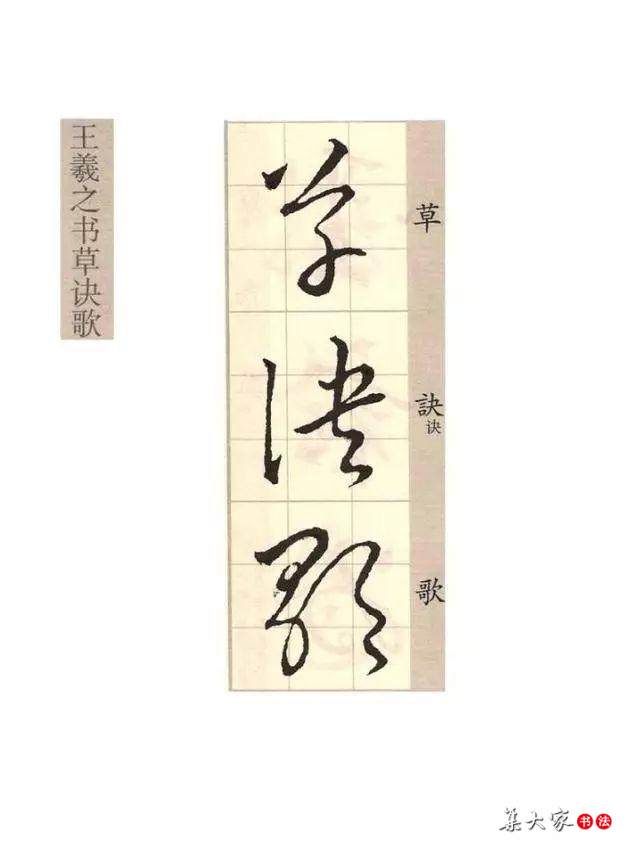 王羲之书草诀歌
草訣歌
草
訣
诀
歌
集大家书法